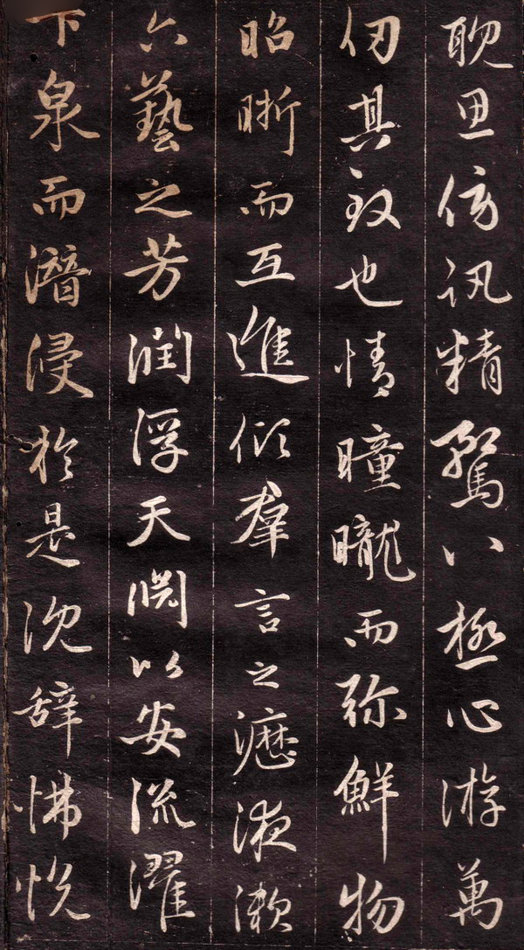 耽思傍訊精騖八極心游萬
仞其致也情曈曨而弥鮮物
昭晣而互進傾羣言之瀝液漱
六藝之芳潤浮天淵以安流濯
下泉而潛浸於是沈辭怫悅